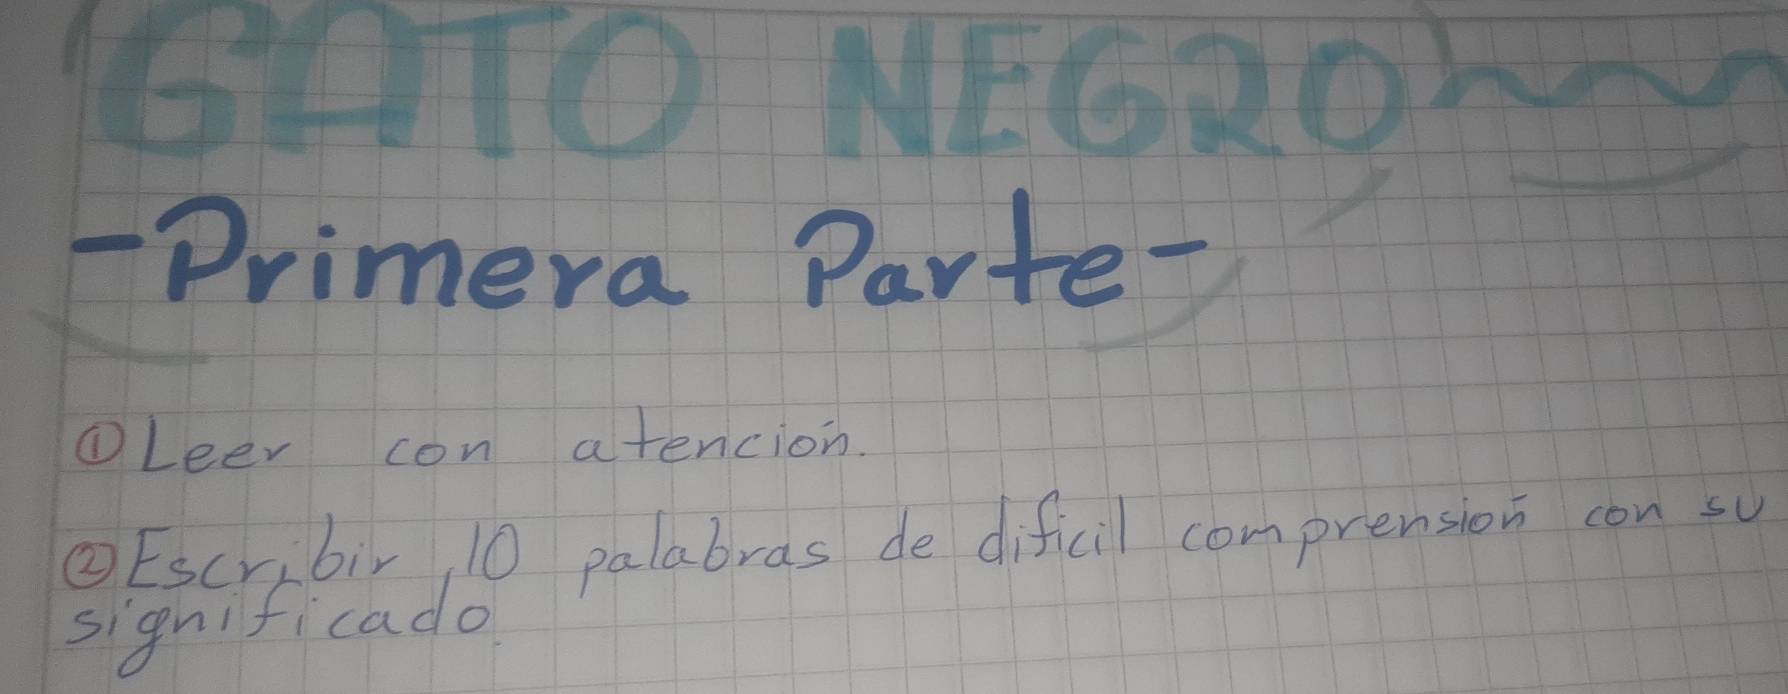 GATO NEGRO
-Primera Parte-
① Leer con atención.
② Escribir 10 palabras de dificil comprensión con su
significado.